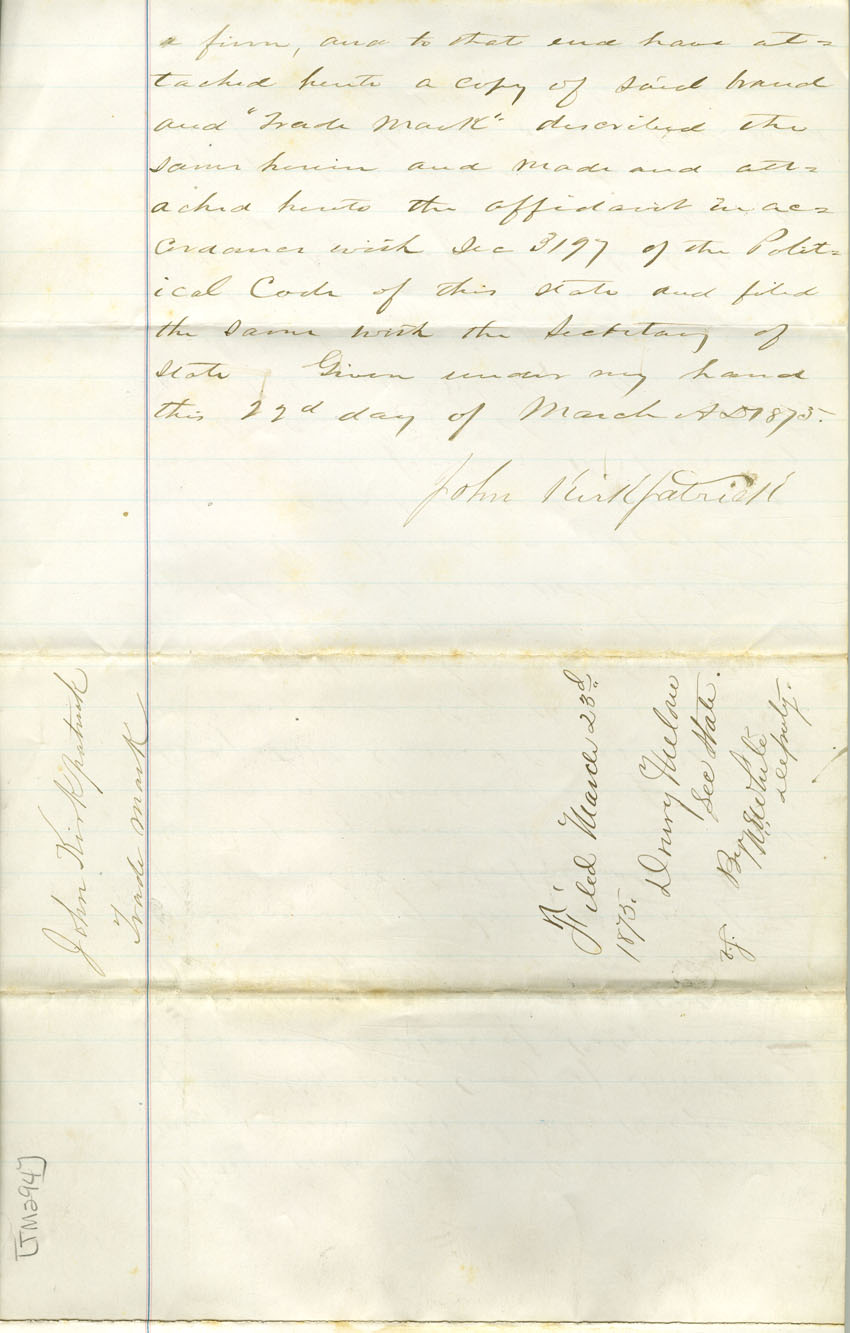 a firm, and to that end have at=
tached hereto a copy of said brand
and "Trade Mark" described the
same herein and made and att=
ached hereto the affidavit in ac=
cordance with Sec 3197 of the Polit=
ical Code of this state and filed
the same with the Secretary of
State Given under my hand
this 22d day of March AD 1875.
John Kirkpatrick
John Kirkpatrick
Trade Mark
Filed March 23d
1875.
Drury Melone
Sec State.
By
White
Deputy.
[TM294]